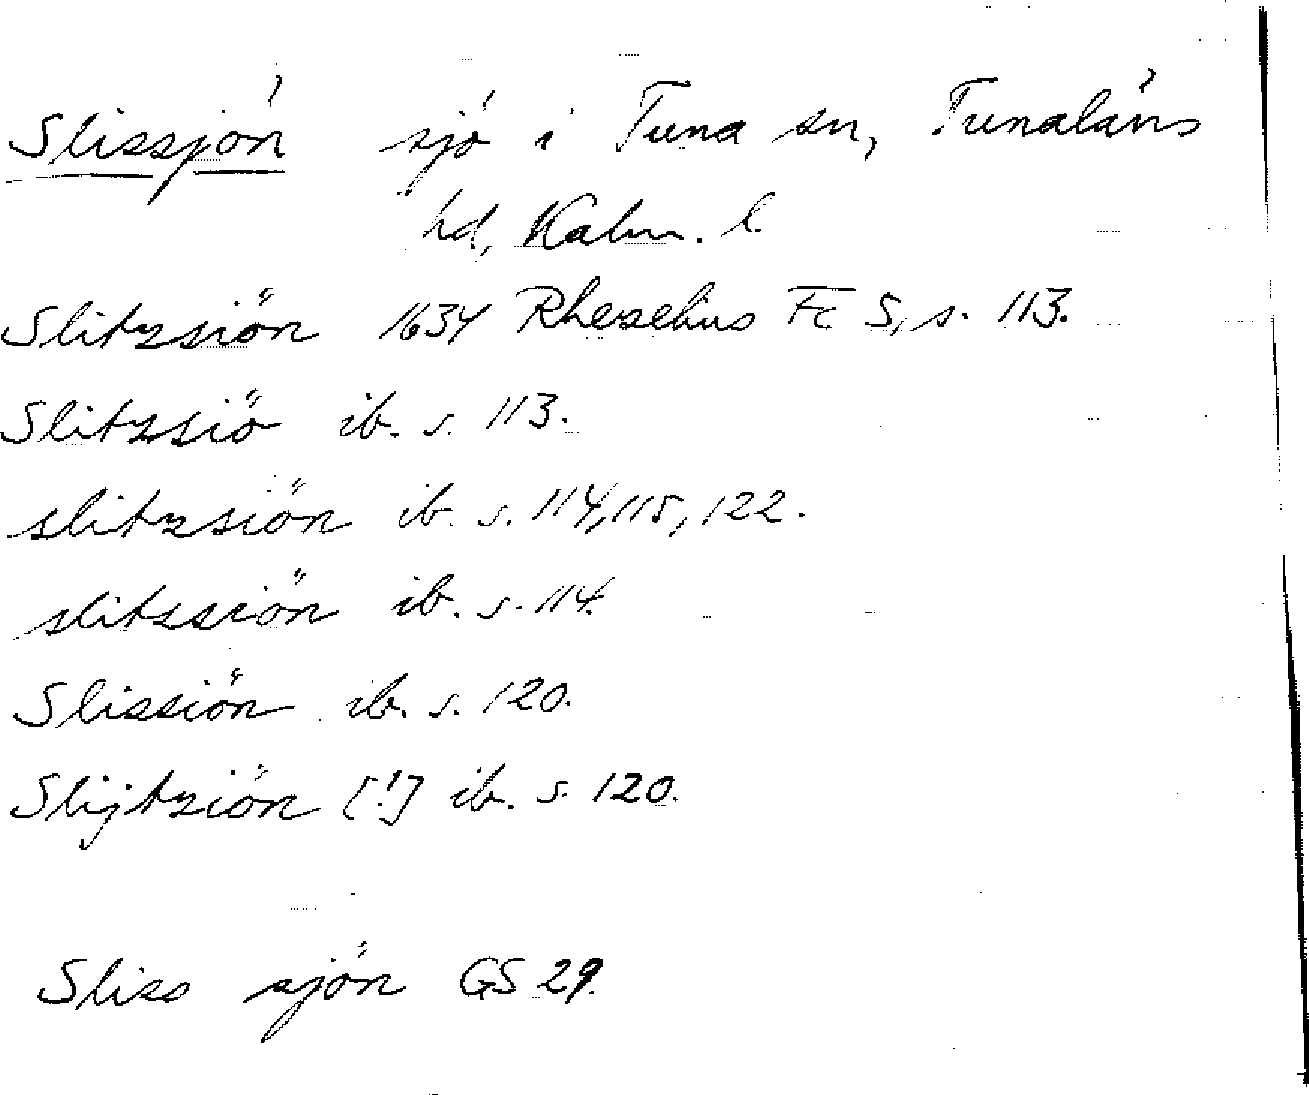 Slissjön sjö i Tuna sn, Tunaläns
hd, Kalm. l.
Slitzsiön 1634 Rhezelius Fc 5, s. 113.
Slitzsiö ib. s. 113.
slitzsiön ib. s. 114, 115, 122.
slitssiön ib. s. 114.
Slissiön ib. s. 120.
Slijtziön [!] ib. s. 120.
Sliss sjön GS 29.